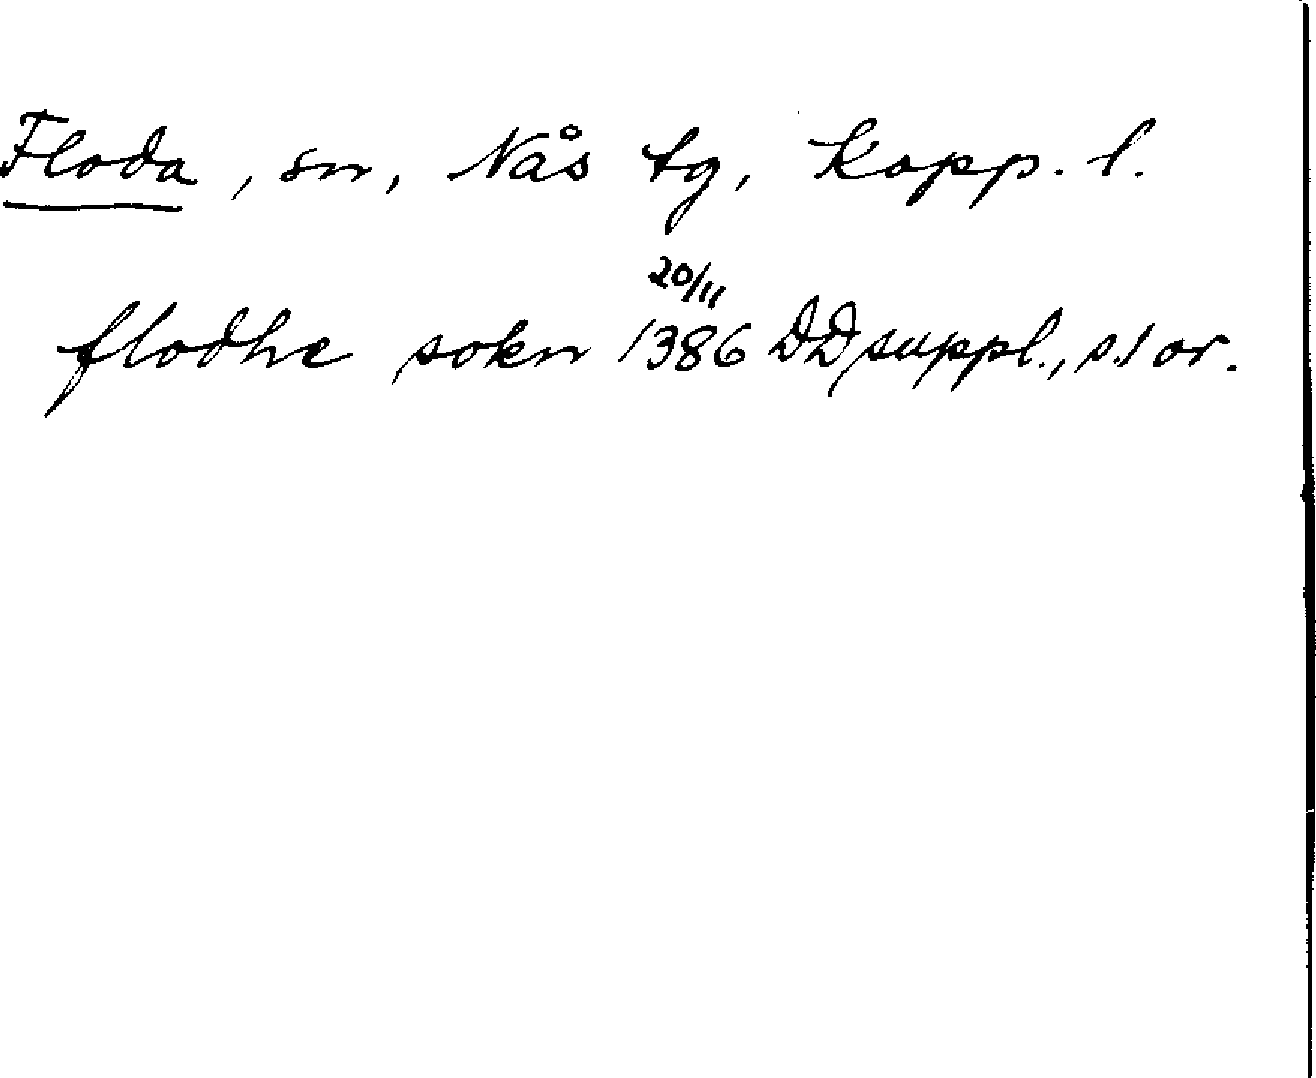 Floda, sn, Nås tg, Kopp. l.
flodhe sokn 20/11 1386 DD suppl., s. 1 or.